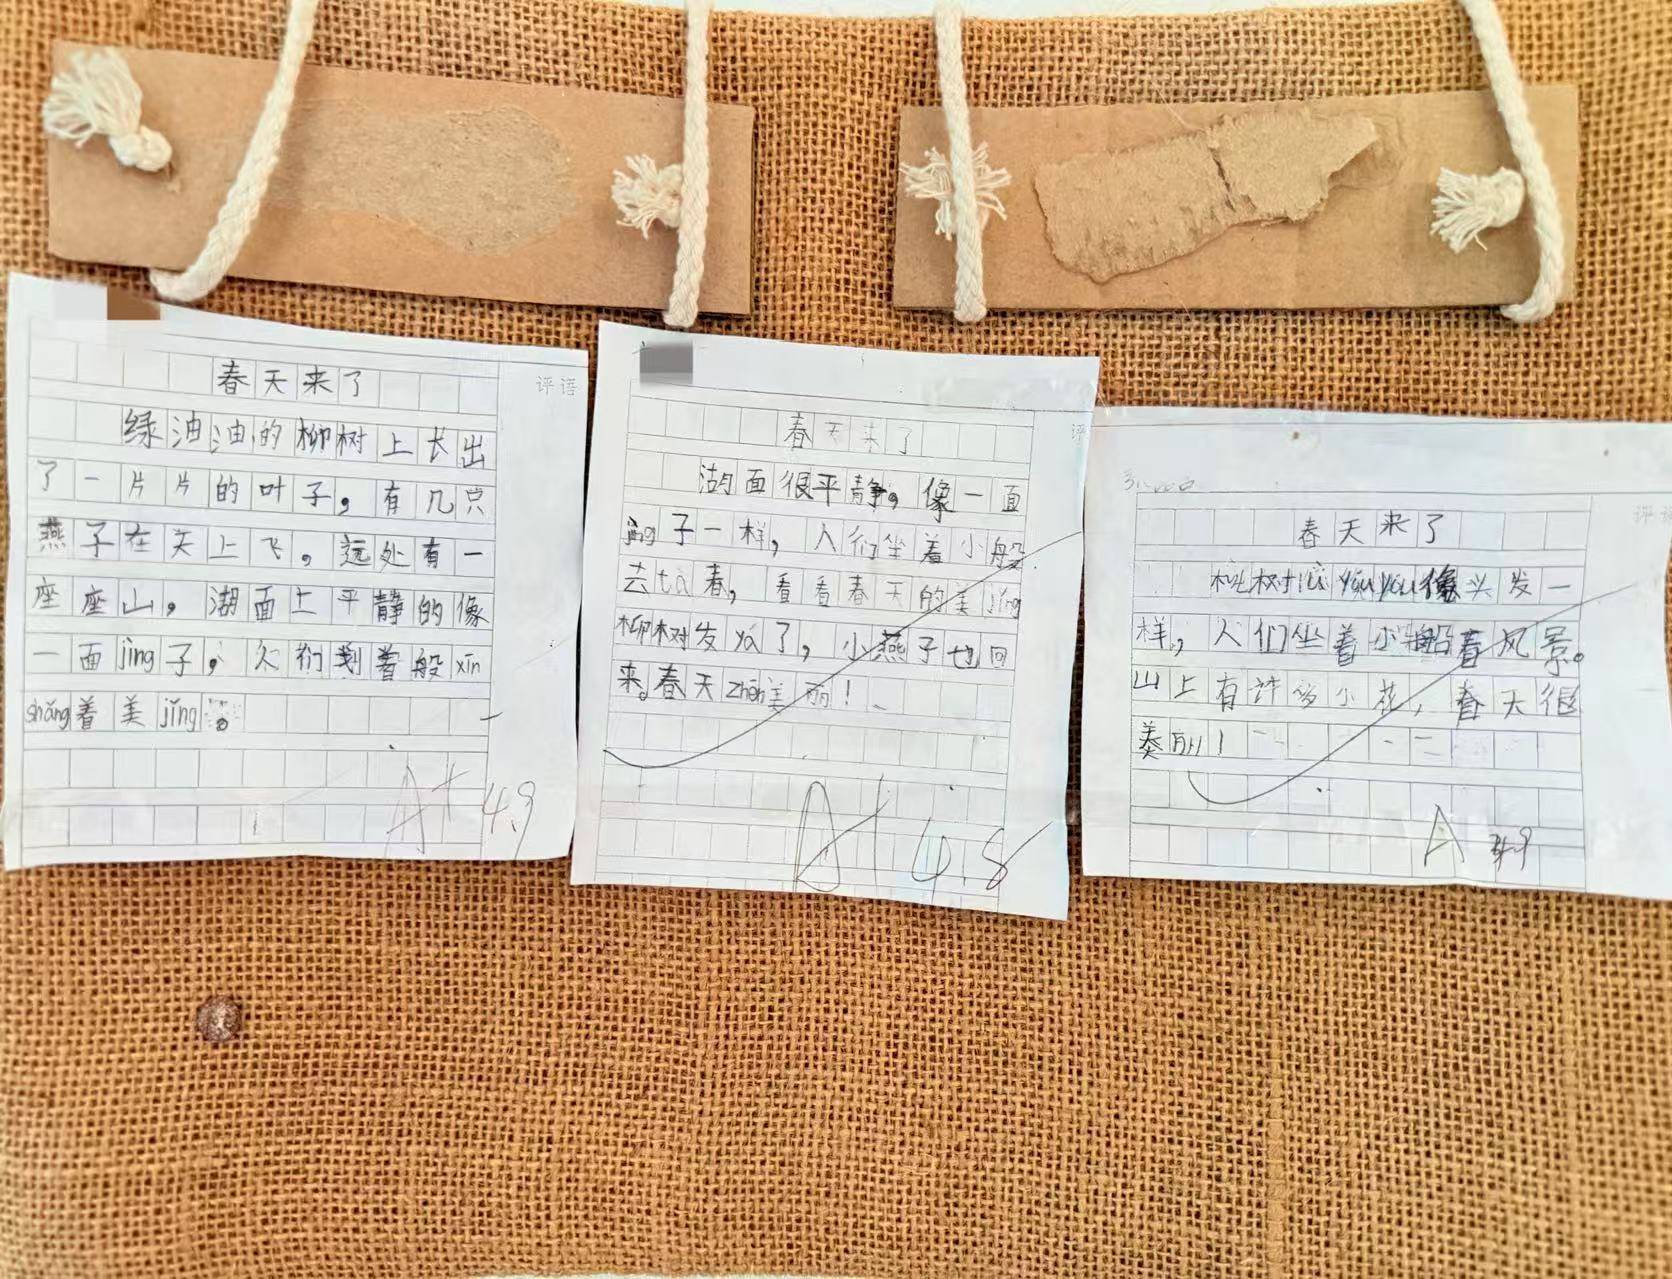 春天来了
评语
绿油油的柳树上长出
了一片片的叶子，有几只
燕子在天上飞。远处有一
座座山。湖面上平静的像
一面jìng子，人们划着般xīn
shǎng着美jǐng。
A+ 4.9
春天来了
评
湖面很平静。像一面
jìng子一样，人们坐着小般
去tà春，看看春天的美jǐng
柳树发yá了，小燕子也回
来。春天zhēn美丽！
A+ 4.8
春天来了
评语
树lǜ yóu yóu像头发一
样，人们坐着小船着风景。
山上有许多小花，春天很
美丽！
A